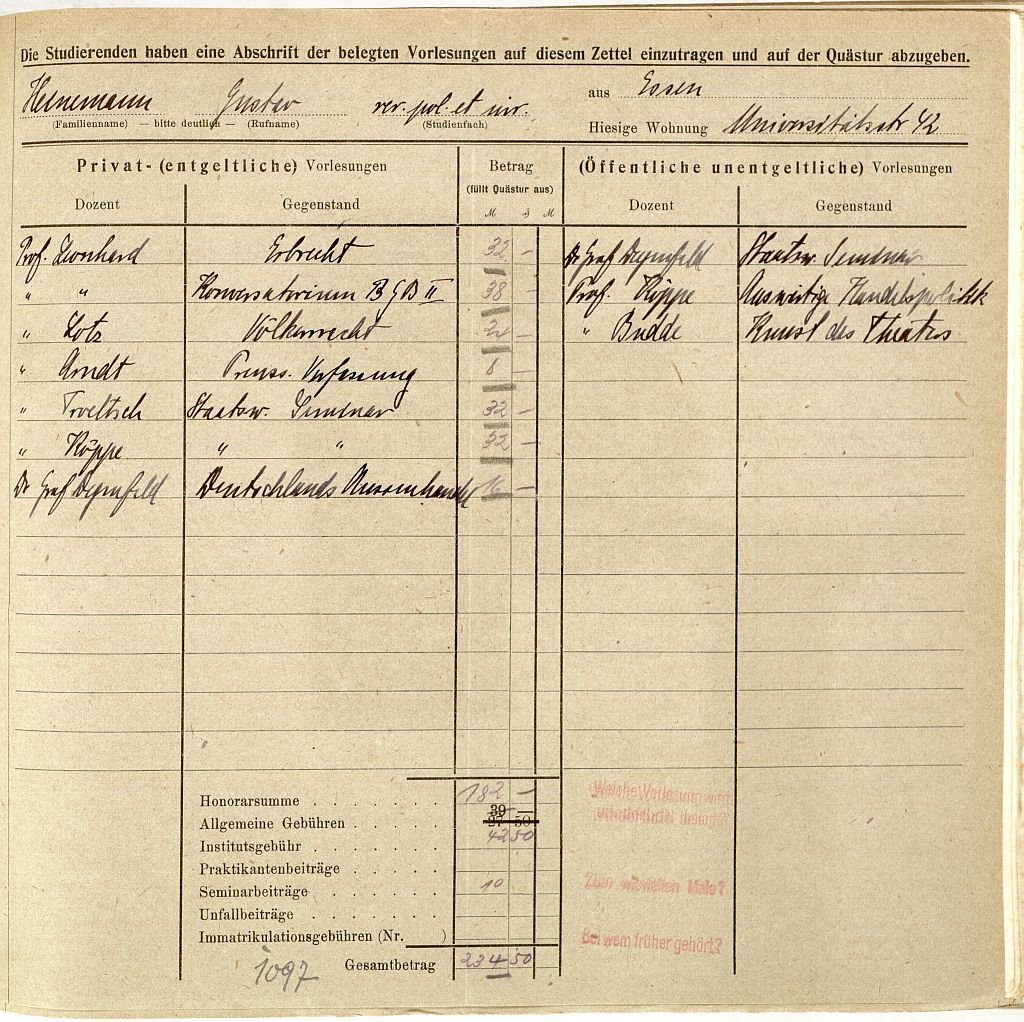 Die Studierenden haben eine Abschrift der belegten Vorlesungen auf diesem Zettel einzutragen und auf der Quästur abzugeben.
Heinemann Gustav rer. pol. et iur. aus Essen
(Familienname) — bitte deutlich — (Rufname) (Studienfach)
Hiesige Wohnung Universitätsstr 42
Privat- (entgeltliche) Vorlesungen Betrag (Öffentliche unentgeltliche) Vorlesungen
(füllt Quästur aus)
Dozent Gegenstand M ₰ M Dozent Gegenstand
Prof. Leonhard Erbrecht 32 — Dr Graf Degenfeld Staatsw. Seminar
" " Konversatorium BGB II 38 — Prof. Köppe Auswärtige Handelspolitik
" Lotz Völkerrecht 24 — " Budde Kunst des Theaters
" Arndt Preuss. Verfassung 8 —
" Troeltsch Staatsw. Seminar 32 —
" Köppe " " 32 —
Dr Graf Degenfeld Deutschlands Aussenhandel 16 —
Honorarsumme . . . . . . 182 —
39 —
Allgemeine Gebühren . . . . 27 50
Institutsgebühr . . . . . . 42 50
Praktikantenbeiträge . . . .
Seminarbeiträge . . . . . . 10
Unfallbeiträge . . . . . . .
Immatrikulationsgebühren (Nr. )
Gesamtbetrag 234 50
1097
Welche Vorlesung wird
Zum wievielten Male?
Bei wem früher gehört?